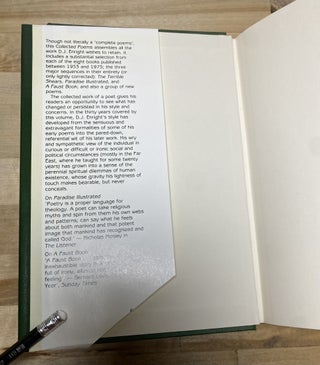 Though not literally a 'complete poems',
this Collected Poems assembles all the
work D.J. Enright wishes to retain. It
includes a substantial selection from
each of the eight books published
between 1953 and 1975; the three
major sequences in their entirety (or
only lightly corrected), The Terrible
Shears, Paradise Illustrated, and
A Faust Book; and also a group of new
poems.
The collected work of a poet gives his
readers an opportunity to see what has
changed or persisted in his style and
concerns. In the thirty years covered by
this volume, D.J. Enright's style has
developed from the sensuous and
extravagant formalities of some of his
early poems into the pared-down,
referential wit of his later work. His wry
and sympathetic view of the individual in
curious or difficult or ironic social and
political circumstances (mostly in the Far
East, where he taught for some twenty
years) has grown into a sense of the
perennial spiritual dilemmas of human
existence, whose gravity his lightness of
touch makes bearable, but never
conceals.
On Paradise Illustrated
'Poetry is a proper language for
theology. A poet can take religious
myths and spin from them his own webs
and patterns; can say what he feels
about both mankind and that potent
image that mankind has recognized and
called God.' — Nicholas Mosley in
The Listener
On A Faust Book
'A Faust Book
inexhaustible
full of irony,
feeling.' —
Year', Sunday Times